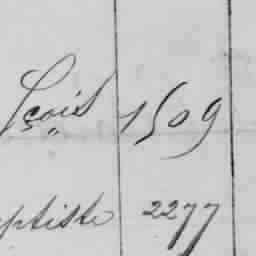 Fçois 1509
ptiste 2277